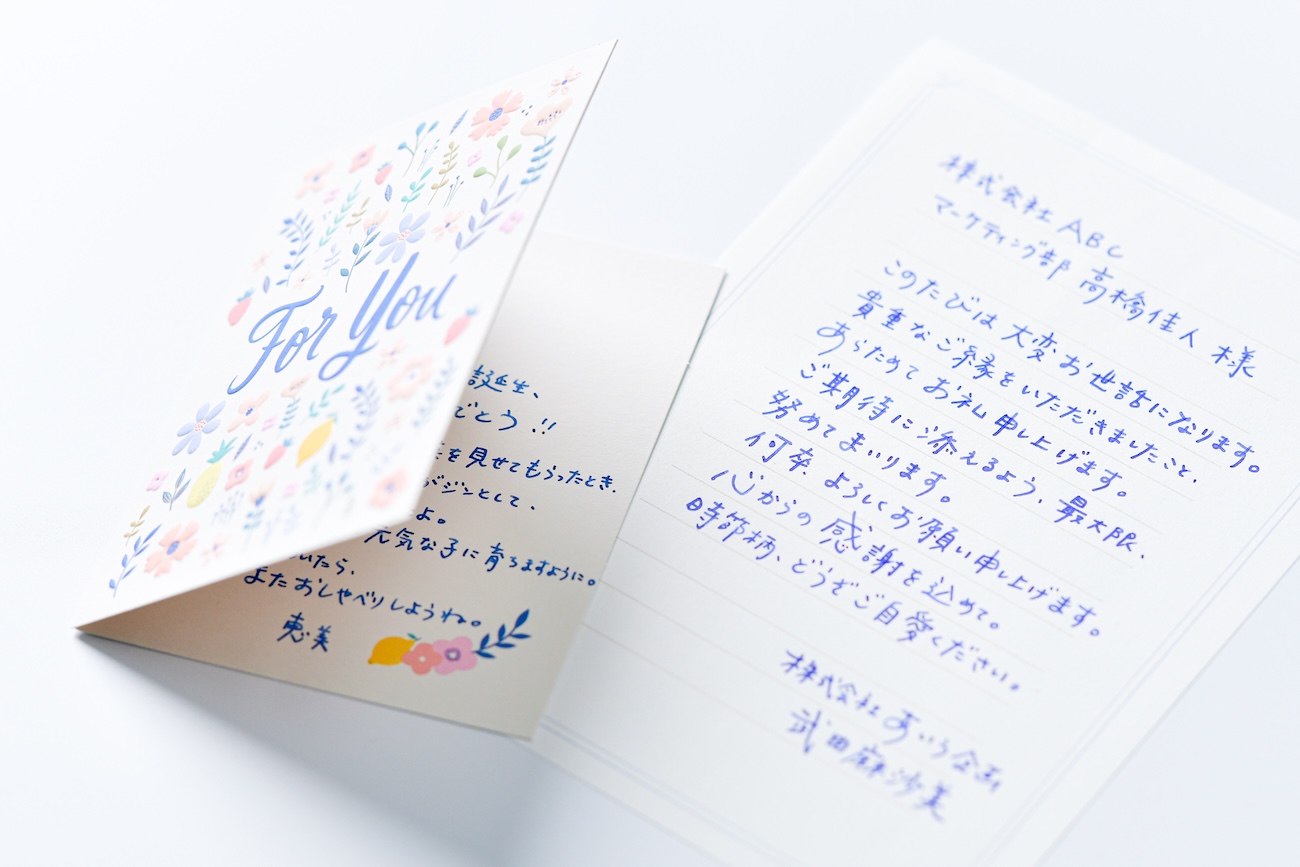 For You
誕生、
でとう!!
を見せてもらったとき、
バジンとして、
よ。
元気な子に育ちますように。
たら、
またおしゃべりしようね。
恵美
株式会社ABC
マーケティング部 高橋佳人 様
このたびは大変お世話になります。
貴重なご縁をいただきましたこと、
あらためてお礼申し上げます。
ご期待に添えるよう、最大限、
努めてまいります。
何卒、よろしくお願い申し上げます。
心からの感謝を込めて。
時節柄、どうぞご自愛ください。
株式会社あいら企画
武田麻沙美